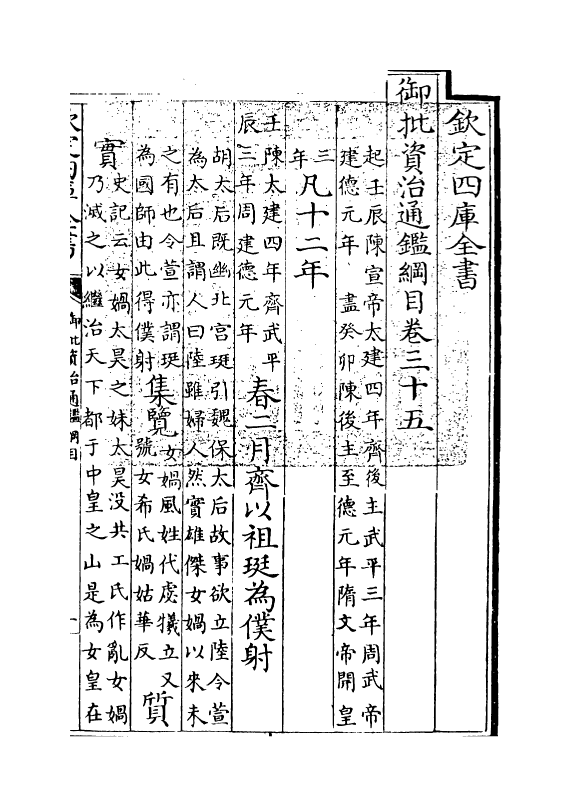 欽定四庫全書
御批資治通鑑綱目卷三十五
起壬辰陳宣帝太建四年齊後主武平三年周武帝
建德元年 盡癸卯陳後主至德元年隋文帝開皇
三年 凡十二年
壬辰 陳太建四年齊武平
三年周建德元年 春二月齊以祖珽為僕射
胡太后既幽北宮珽引魏保太后故事欲立陸令萱
為太后且謂人曰陸雖婦人然實雄傑女媧以來未
之有也令萱亦謂珽
為國師由此得僕射 集覽 女媧風姓代虙犧立又
號女希氏媧姑華反 質
實 史記云女媧太昊之妹太昊没共工氏作亂女媧
乃滅之以繼治天下都于中皇之山是為女皇在
欽定四庫全書
御批資治通鑑綱目